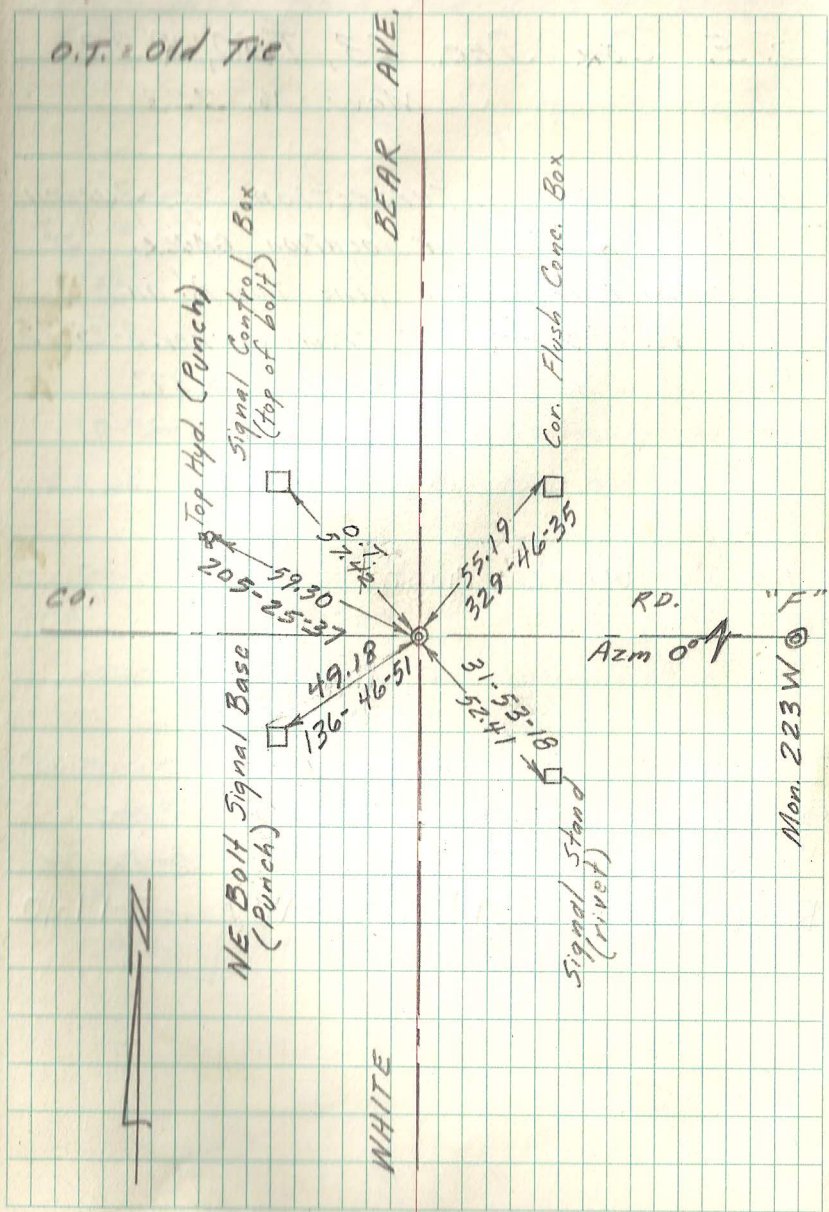 O.T. = Old Tie
WHITE BEAR AVE.
Top Hyd. (Punch)
Signal Control Box
(top of bolt)
Cor. Flush Conc. Box
O.T.
59.30
205-25-37
55.19
329-46-35
CO. RD. "F"
Azm 0°
Mon. 223 W
49.18
136-46-51
31-53-18
52.41
NE Bolt Signal Base
(Punch)
Signal Stand
(rivet)
N